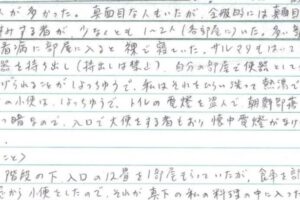 人が多かった。真面目な人もいたが、全般的には真面目
みする者が、少なくとも1〜2人(各部屋に)いた。多い
看病に部屋に入ると裸で寝ていた。サルマタもはいて
器を持ち出し(持出しは禁止)、自分の部屋で便器として
げられることがしょっちゅう、私はそれをひろい洗って熱湯で
の小便は、しょっちゅう、トイレの電燈を盗んで、朝鮮部
っ暗なので、入口で大便をする者もおり懐中電燈がなけ
こと)
階段の下入口の12畳を1部屋もらっていたが、食事を
から小便をしたので、それが真下の私の料理の中に入っ